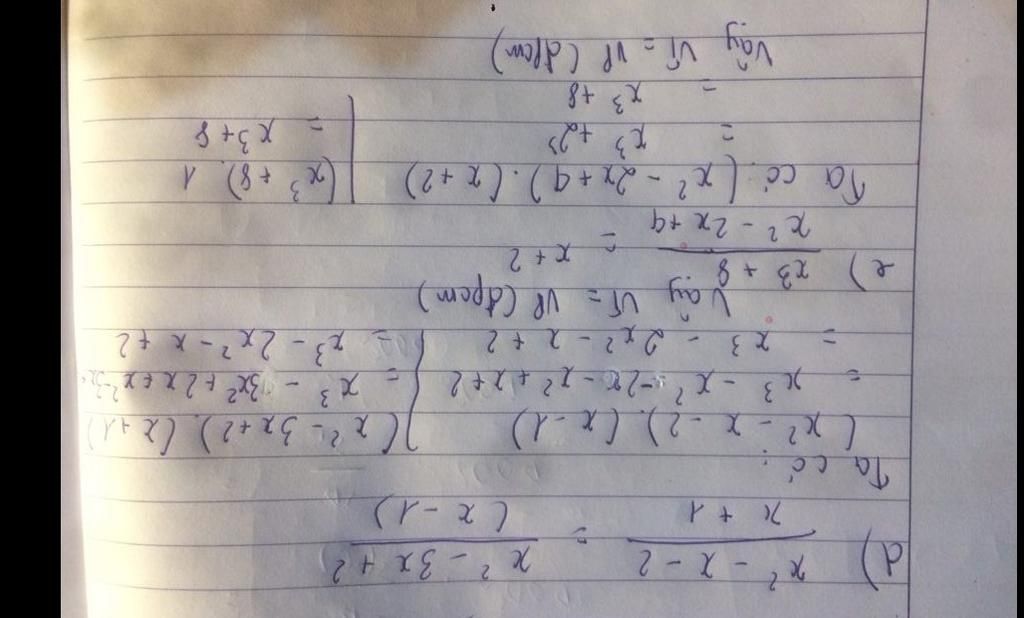 d) x² - x - 2 / x + 1 = x² - 3x + 2 / (x - 1)
Ta có:
(x² - x - 2).(x - 1) | (x² - 3x + 2).(x + 1)
= x³ - x² - 2x - x² + x + 2 | = x³ - 3x² + 2x + x² - 3x
= x³ - 2x² - x + 2 | = x³ - 2x² - x + 2
Vậy VT = VP (đpcm)
e) x³ + 8 / x² - 2x + 4 = x + 2
Ta có: (x² - 2x + 4).(x + 2) | (x³ + 8).1
= x³ + 2³ | = x³ + 8
= x³ + 8
Vậy VT = VP (đpcm)